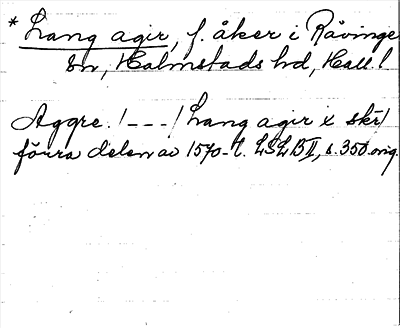 * Lang agir, f. åker i Rävinge
sn, Halmstads hd, Hall.!
Aggre. /---/ Lang agir x skr/
förra delen av 1570-t. LSLB II, s. 350. orig.